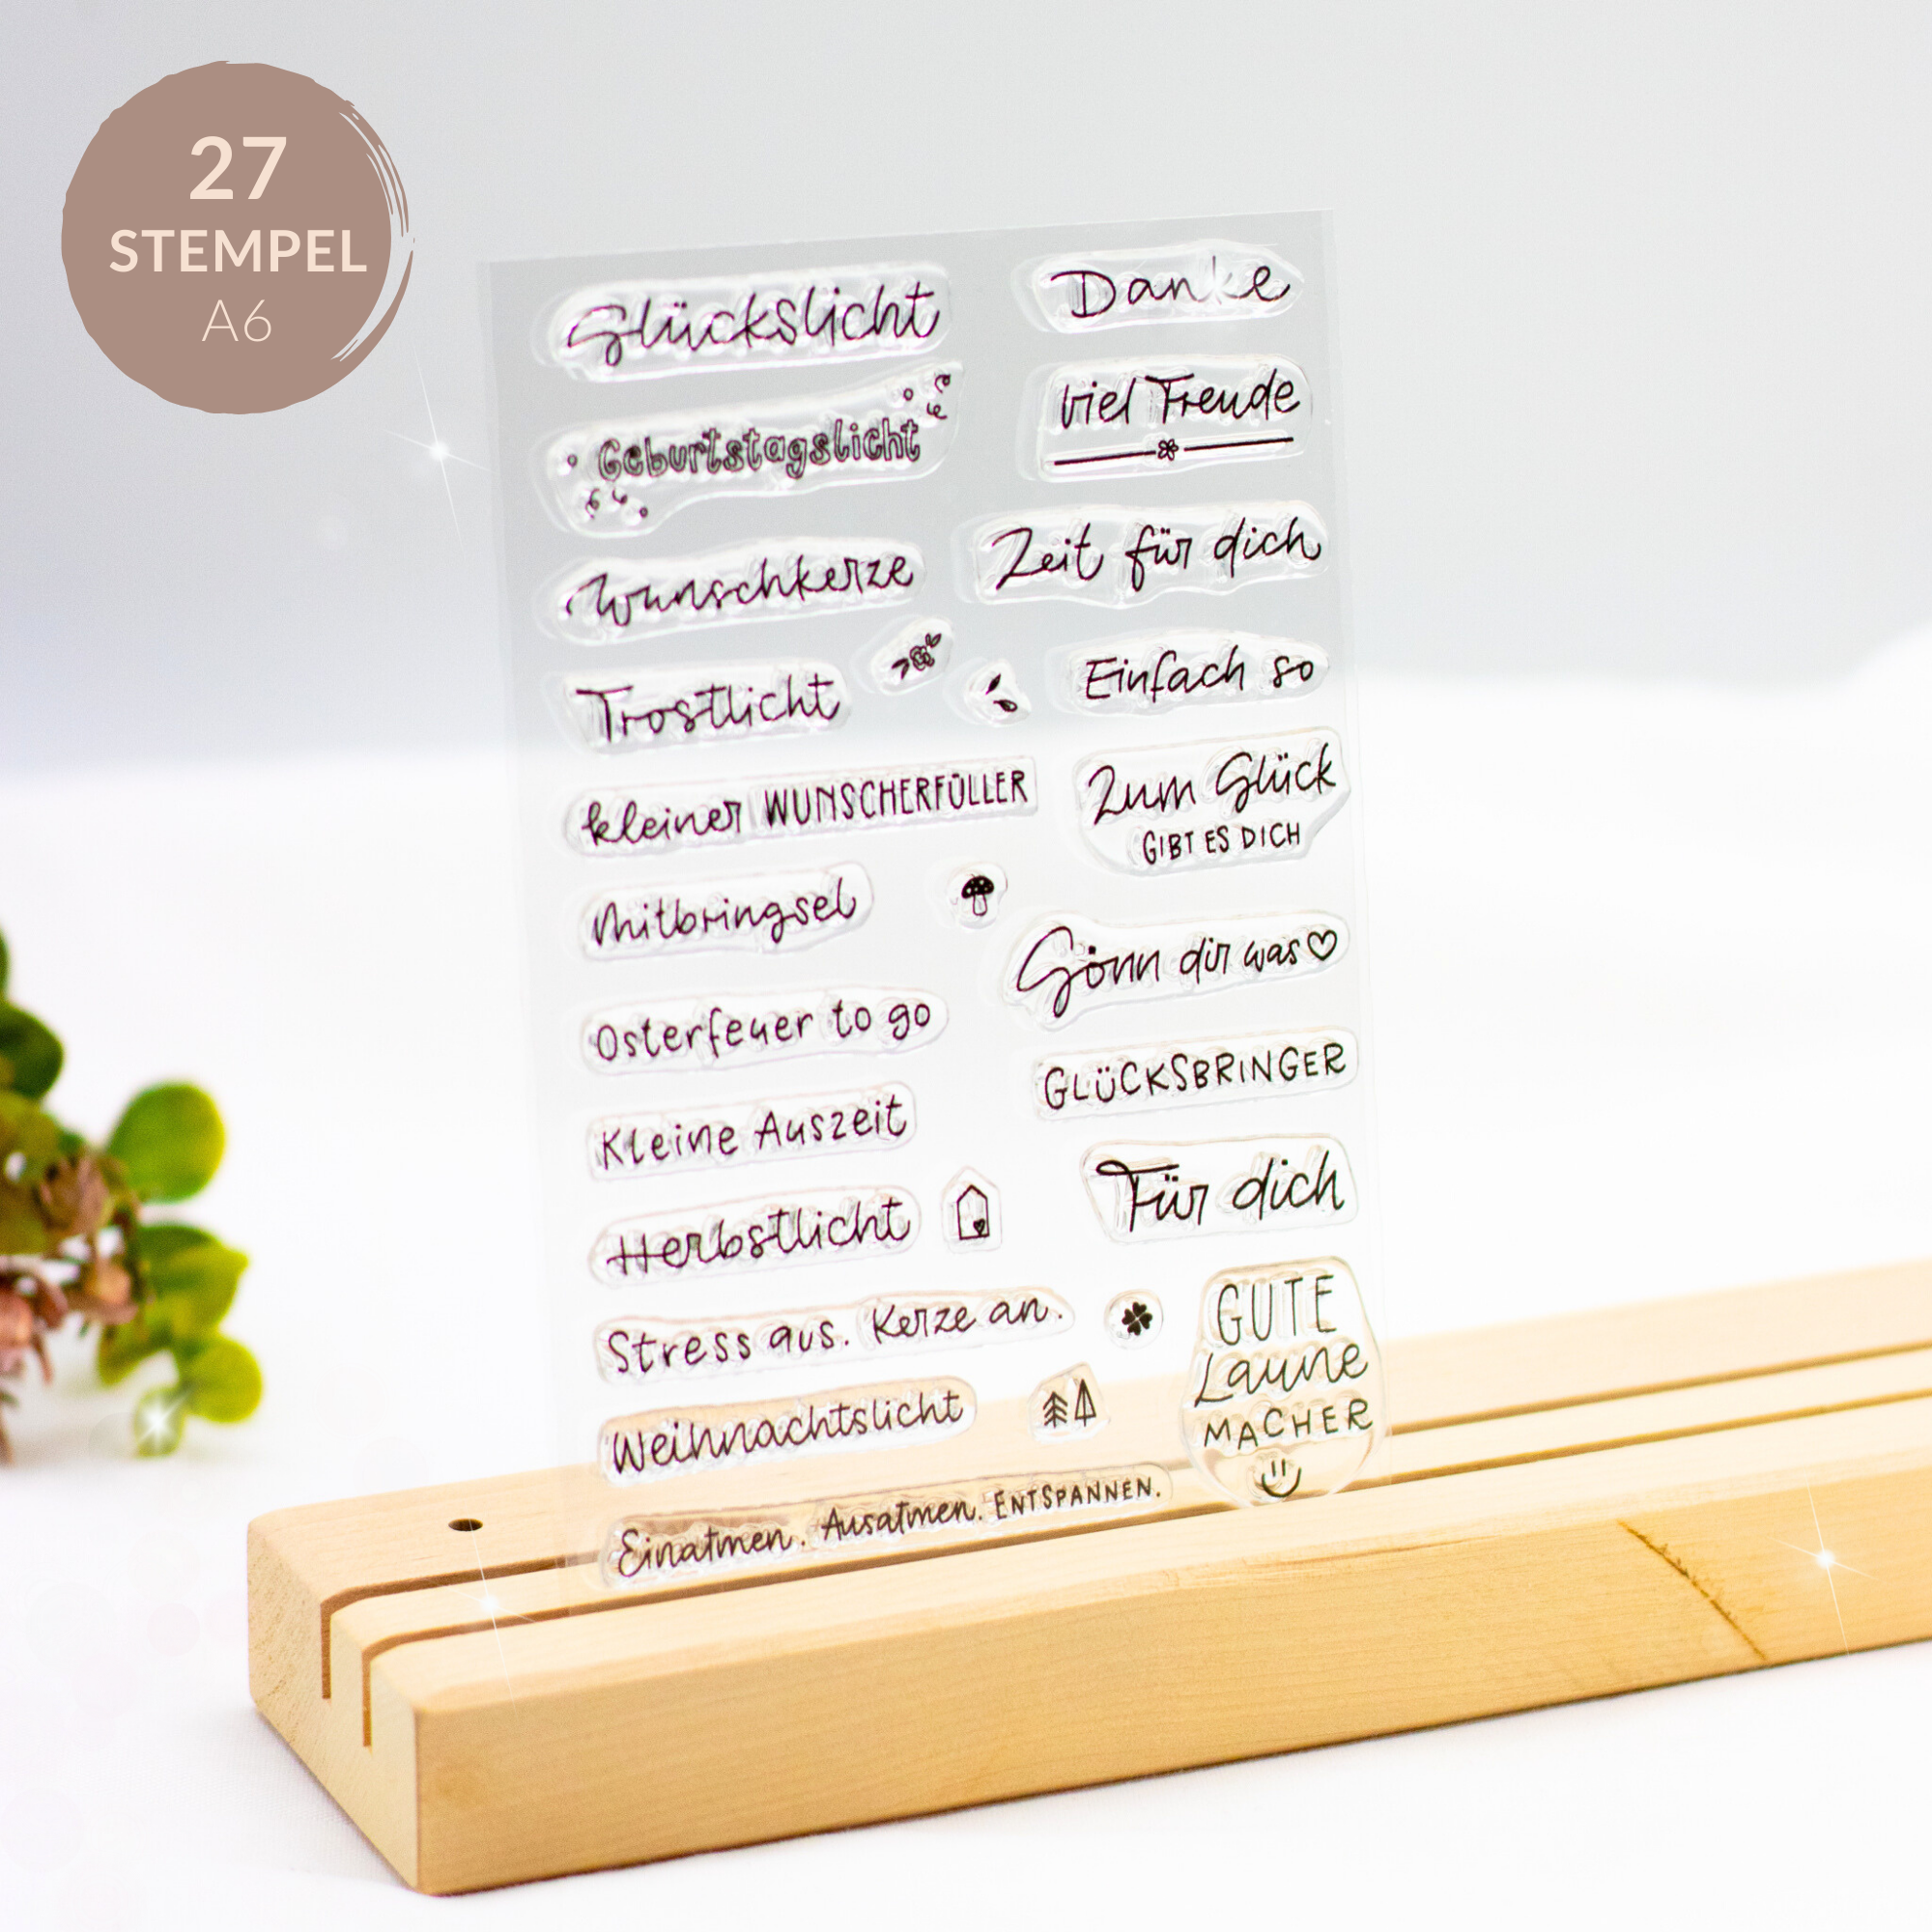 27
STEMPEL
A6
Glückslicht
Geburtstagslicht
Wunschkerze
Trostlicht
kleiner WUNSCHERFÜLLER
Mitbringsel
Osterfeuer to go
Kleine Auszeit
Herbstlicht
Stress aus. Kerze an.
Weihnachtslicht
Einatmen. Ausatmen. ENTSPANNEN.
Danke
Viel Freude
Zeit für dich
Einfach so
Zum Glück
GIBT ES DICH
Gönn dir was♡
GLÜCKSBRINGER
Für dich
GUTE
Laune
MACHER